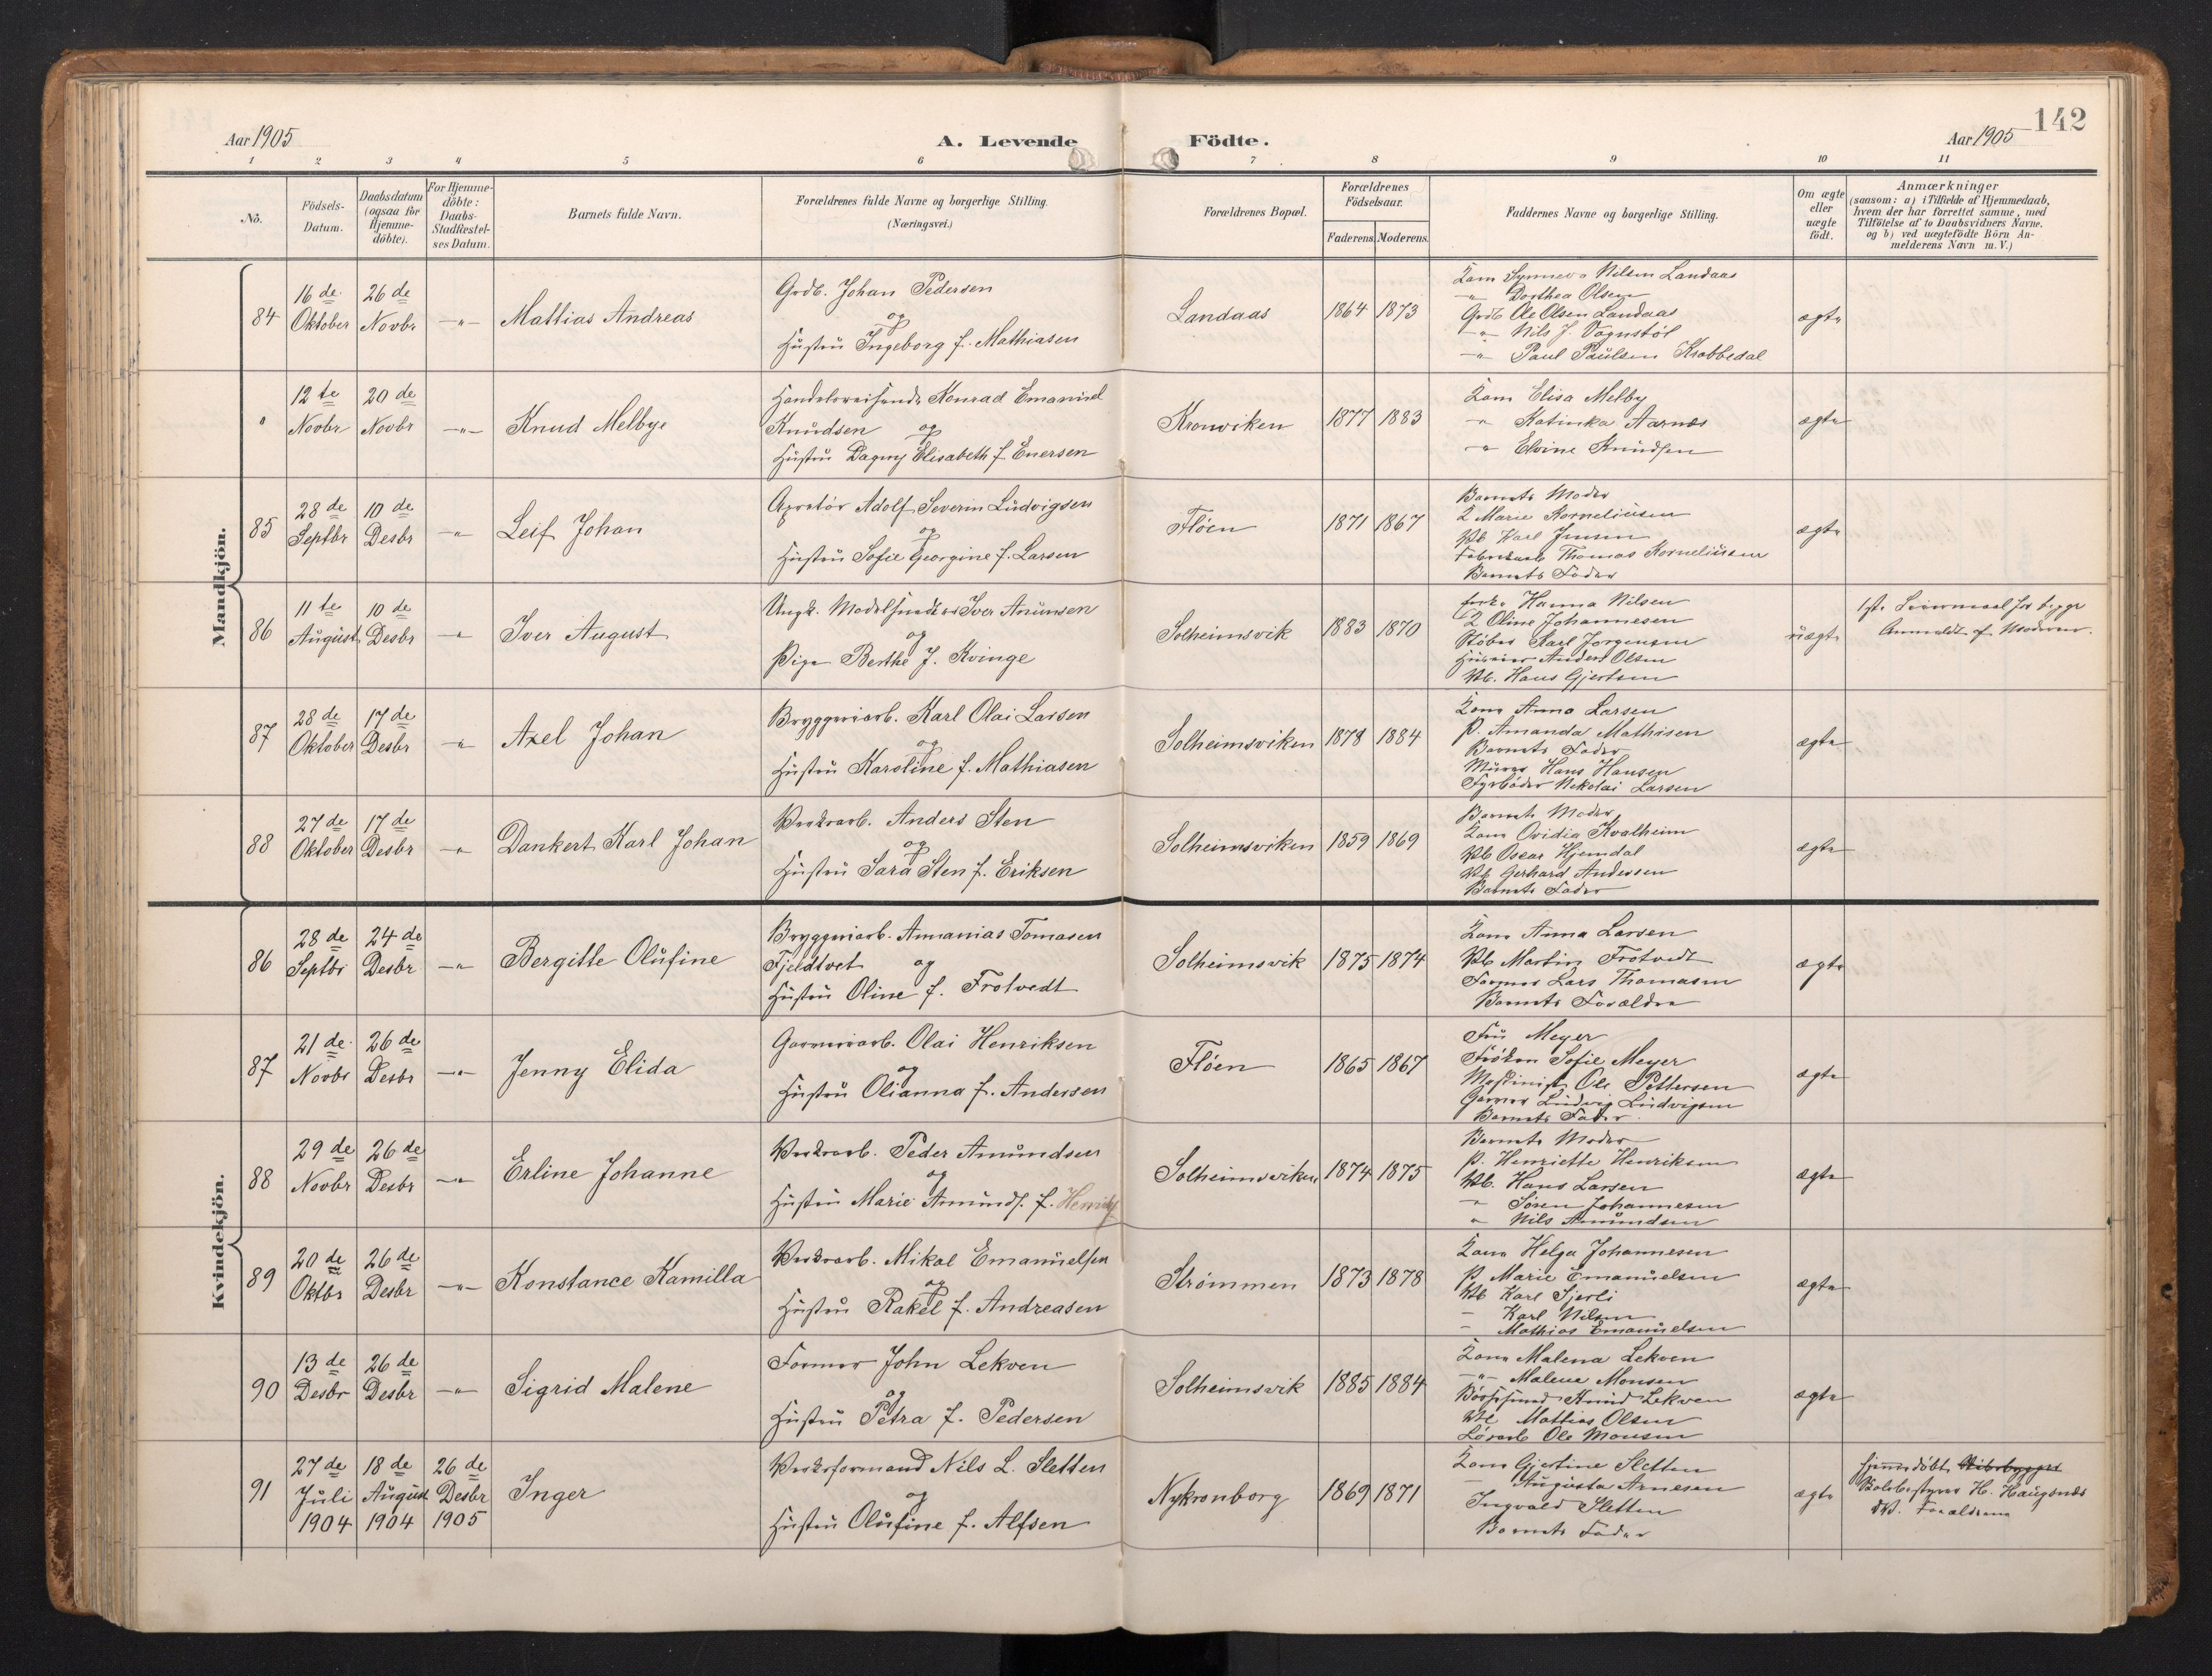 142
Aar 1905
A. Levende
Födte.
Aar 1905
1 2 3 4 5 6 7 8 9 10 11
No.
Födsels-
Datum.
Daabsdatum
(ogsaa for
Hjemme-
döbte).
For Hjemme-
döbte:
Daabs-
Stadfæstel-
ses Datum.
Barnets fulde Navn.
Forældrenes fulde Navne og borgerlige Stilling.
(Næringsvei.)
Forældrenes Bopæl.
Forældrenes
Födselsaar.
Faderens. Moderens.
Faddernes Navne og borgerlige Stilling.
Om ægte
eller
uægte
födt.
Anmærkninger
(saasom: a) i Tilfælde af Hjemmedaab,
hvem der har forrettet samme, med
Tilföielse af to Daabsvidners Navne.
og b) ved uægtefödte Börn An-
melderens Navn m. V.)
Mandkjön.
84
16 de
Oktober
26 de
Novbr
-"-
Mattias Andreas
Grdb. Johan Pedersen
og
Hustru Ingeborg f. Mathiasen
Landaas
1864
1873
Kone Synneva Nilsen Landaas
-"- Dorthea Olsen
Grdb Ole Olsen Landaas
-"- Nils J. Vognstöl
-"- Paul Paulsen Krabbedal
ægte
"
12 te
Novbr
20 de
Novbr
-"-
Knud Melbye
Handelsreisende Konrad Emanuel
Knudsen og
Hustru Dagny Elisabeth f. Enersen
Kronviken
1877
1883
Kone Elisa Melby
" Katinka Aarnes
" Elvine Knudsen
ægte
85
28 de
Septbr
10 de
Desbr
-"-
Leif Johan
Adolf Severin Ludvigsen
og
Hustru Sofie Georgine f. Larsen
Flöen
1871
1867
Barnets Moder
K Marie Korneliusen
Vb Karl Jensen
Thomas Korneliusen
Barnets Fader
ægte
86
11 te
August
10 de
Desbr
"
Iver August
Ungk. Modelsnedker Iver Anunsen
og
Pige Berthe J. Kvinge
Solheimsvik
1883
1870
Hanna Nilsen
K Oline Johannesen
Stöber Karl Jorgensen
Anders Olsen
Vb. Hans Gjertsen
uægte
1ste Leiermaal for begge
Anmeldt af Moderen.
87
28 de
Oktober
17 de
Desbr
-"-
Axel Johan
Bryggeriarb. Karl Olai Larsen
og
Hustru Karoline f. Mathiasen
Solheimsviken
1878
1884
Kone Anna Larsen
P. Amanda Mathisen
Barnets Fader
Murer Hans Hansen
Fyrböder Nikolai Larsen
ægte
88
27 de
Oktober
17 de
Desbr
-"-
Dankert Karl Johan
Verksarb. Anders Sten
og
Hustru Sara Sten f. Eriksen
Solheimsviken
1859
1869
Barnets Moder
Kone Ovidia Kvalheim
Vb Oscar Hjemdal
Vb Gerhard Andersen
Barnets Fader
ægte
Kvindekjön.
86
28 de
Septbr
24 de
Desbr
-"-
Bergitte Olufine
Bryggeriarb. Annanias Tomasen
Fjeldtvet og
Hustru Oline f. Frotvedt
Solheimsvik
1875
1874
Kone Anna Larsen
Vb Martin Frotvedt
Former Lars Thomasen
Barnets Forældre
ægte
87
21 de
Novbr
26 de
Desbr
-"-
Jenny Elida
Garveriarb. Olai Henriksen
og
Hustru Olianna f. Andersen
Flöen
1865
1867
Fru Meyer
Fröken Sofie Meyer
Maskinist Ole Pettersen
Garver Ludvig Ludvigsen
Barnets Fader.
ægte
88
29 de
Novbr
26 de
Desbr
-"-
Erline Johanne
Verksarb. Peder Amundsen
og
Hustru Marie Amunds. f. Henriks
Solheimsviken
1874
1875
Barnets Moder
P. Henriette Henriksen
Vb. Hans Larsen
" Sören Johannesen
" Nils Amundsen
ægte
89
20 de
Oktbr
26 de
Desbr
-"-
Konstance Kamilla
Verksarb. Mikal Emanuelsen
og
Hustru Rakel f. Andreasen
Strömmen
1873
1878
Kone Helga Johannesen
P. Marie Emanuelsen
Vb Karl Sjerli
- Karl Nilsen
- Mathias Emanuelsen
ægte
90
13 de
Desbr
26 de
Desbr
-"-
Sigrid Malene
Former John Lekven
og
Hustru Petra f. Pedersen
Solheimsvik
1885
1884
Kone Malena Lekven
-"- Malene Monsen
Knud Lekven
Mattias Olsen
Ole Monsen
ægte
91
27 de
Juli
1904
18 de
August
1904
26 de
Desbr
1905
Inger
Verksformand Nils L. Sletten
og
Hustru Olufine f. Alfsen
Nykronborg
1869
1871
Kone Gjertine Sletten
- Augusta Arnesen
Ingvald Sletten
Barnets Fader
ægte
Hjemmedöbt
H. Haugsnæs
DV. Forældrene